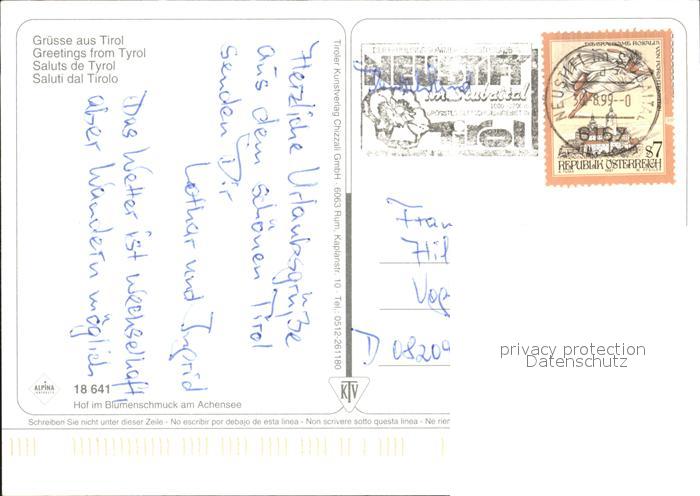 Grüsse aus Tirol
Greetings from Tyrol
Saluts de Tyrol
Saluti dal Tirolo
Herzliche Urlaubsgrüße
aus dem schönen Tirol
senden Dir
Lothar und Ingrid
Das Wetter ist wechselhaft
aber Wandern möglich
Tiroler Kunstverlag Chizzali GmbH · 6063 Rum, Kaplanstr. 10 · Tel.: 0512-261180
NEUSTIFT
Tirol
Deutschland
6167
S7
REPUBLIK ÖSTERREICH
Frau
Hil
Vog
D 08209
privacy protection
Datenschutz
ALPINA
18 641
KTV
Hof im Blumenschmuck am Achensee
Schreiben Sie nicht unter dieser Zeile - No escribir por debajo de esta linea - Non scrivere sotto questa linea - Ne